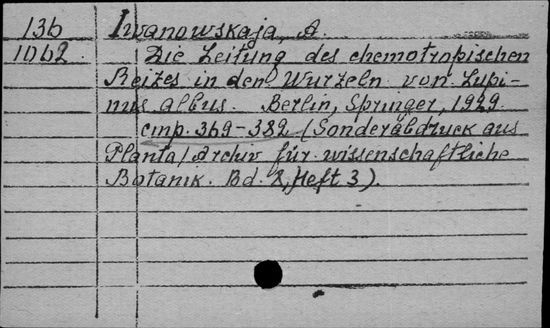 136 Iwanowskaja, A.
1062 Die Leitung des chemotropischen
Reizes in den Wurzeln von Lupi-
nus albus. Berlin, Springer, 1929.
стр. 369-382 (Sonderabdruck aus
Planta/Archiv für wissenschaftliche
Botanik. Bd. 8, Heft 3).